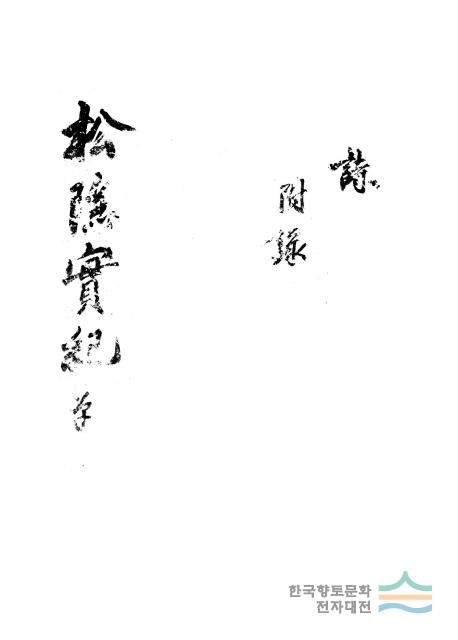 詩
附錄
松隱實紀
한국향토문화
전자대전